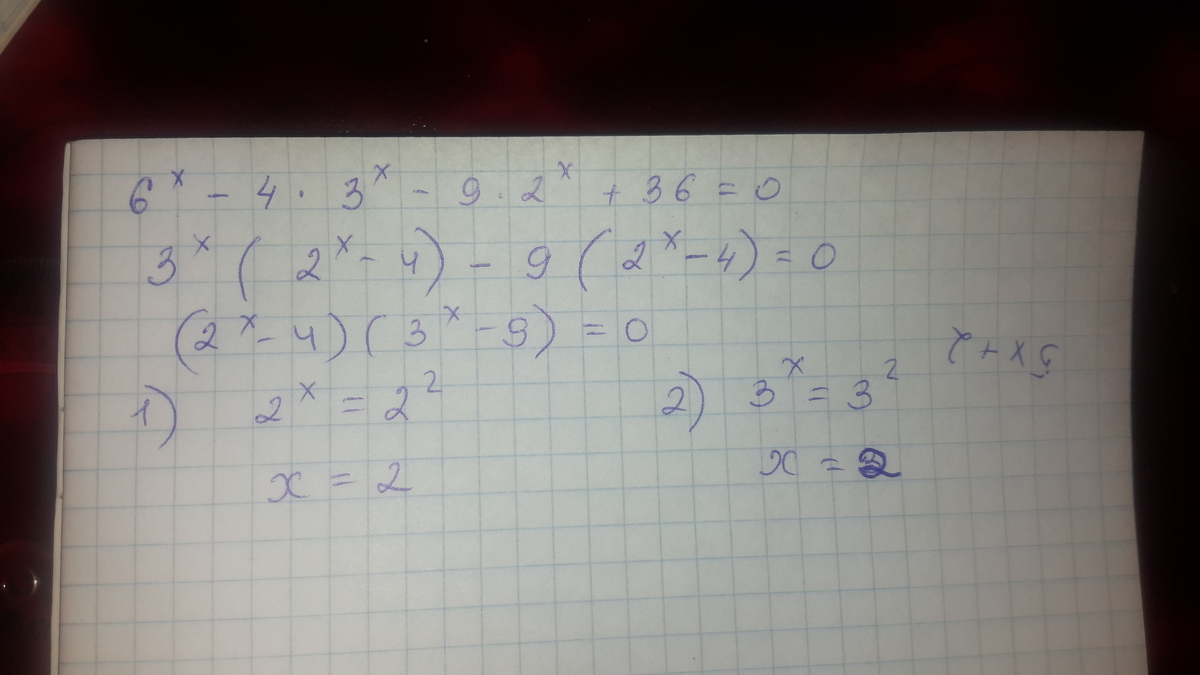 6^x - 4 · 3^x - 9 · 2^x + 36 = 0
3^x ( 2^x - 4) - 9 ( 2^x - 4) = 0
(2^x - 4) ( 3^x - 9) = 0
1) 2^x = 2^2
2) 3^x = 3^2
x = 2
x = 2